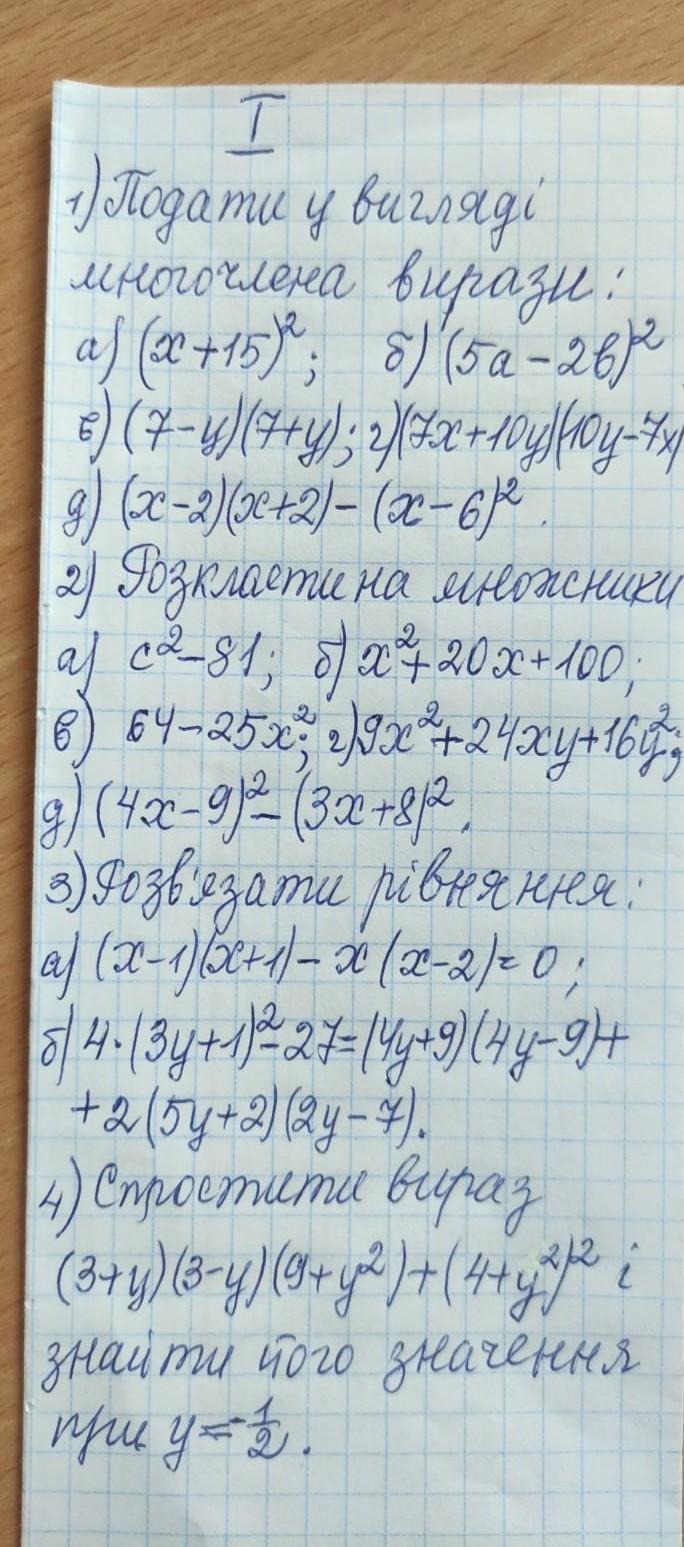 I
1) Подати у вигляді
многочлена вирази:
а) (x+15)²; б) (5a-2b)²
в) (7-y)(7+y); г) (7x+10y)(10y-7x)
д) (x-2)(x+2)-(x-6)².
2) Розкласти на множники
а) c²-81; б) x²+20x+100;
в) 64-25x²; г) 9x²+24xy+16y²;
д) (4x-9)²-(3x+8)².
3) Розв'язати рівняння:
а) (x-1)(x+1)-x(x-2)=0;
б) 4·(3y+1)²-27=(4y+9)(4y-9)+
+2(5y+2)(2y-7).
4) Спростити вираз
(3+y)(3-y)(9+y²)+(4+y²)² і
знайти його значення
при y=-1/2.